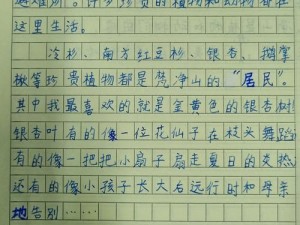 避难所。许多珍贵的植物和动物都在
这里生活。
冷杉、南方红豆杉、银杏、鹅掌
楸等珍贵植物都是梵净山的“居民”。
其中我最喜欢的就是金黄色的银杏树
银杏叶有的像一位花仙子在枝头舞蹈
有的像一把把小扇子扇走夏日的炎热
还有的像小孩子长大后远行时和母亲
地告别……